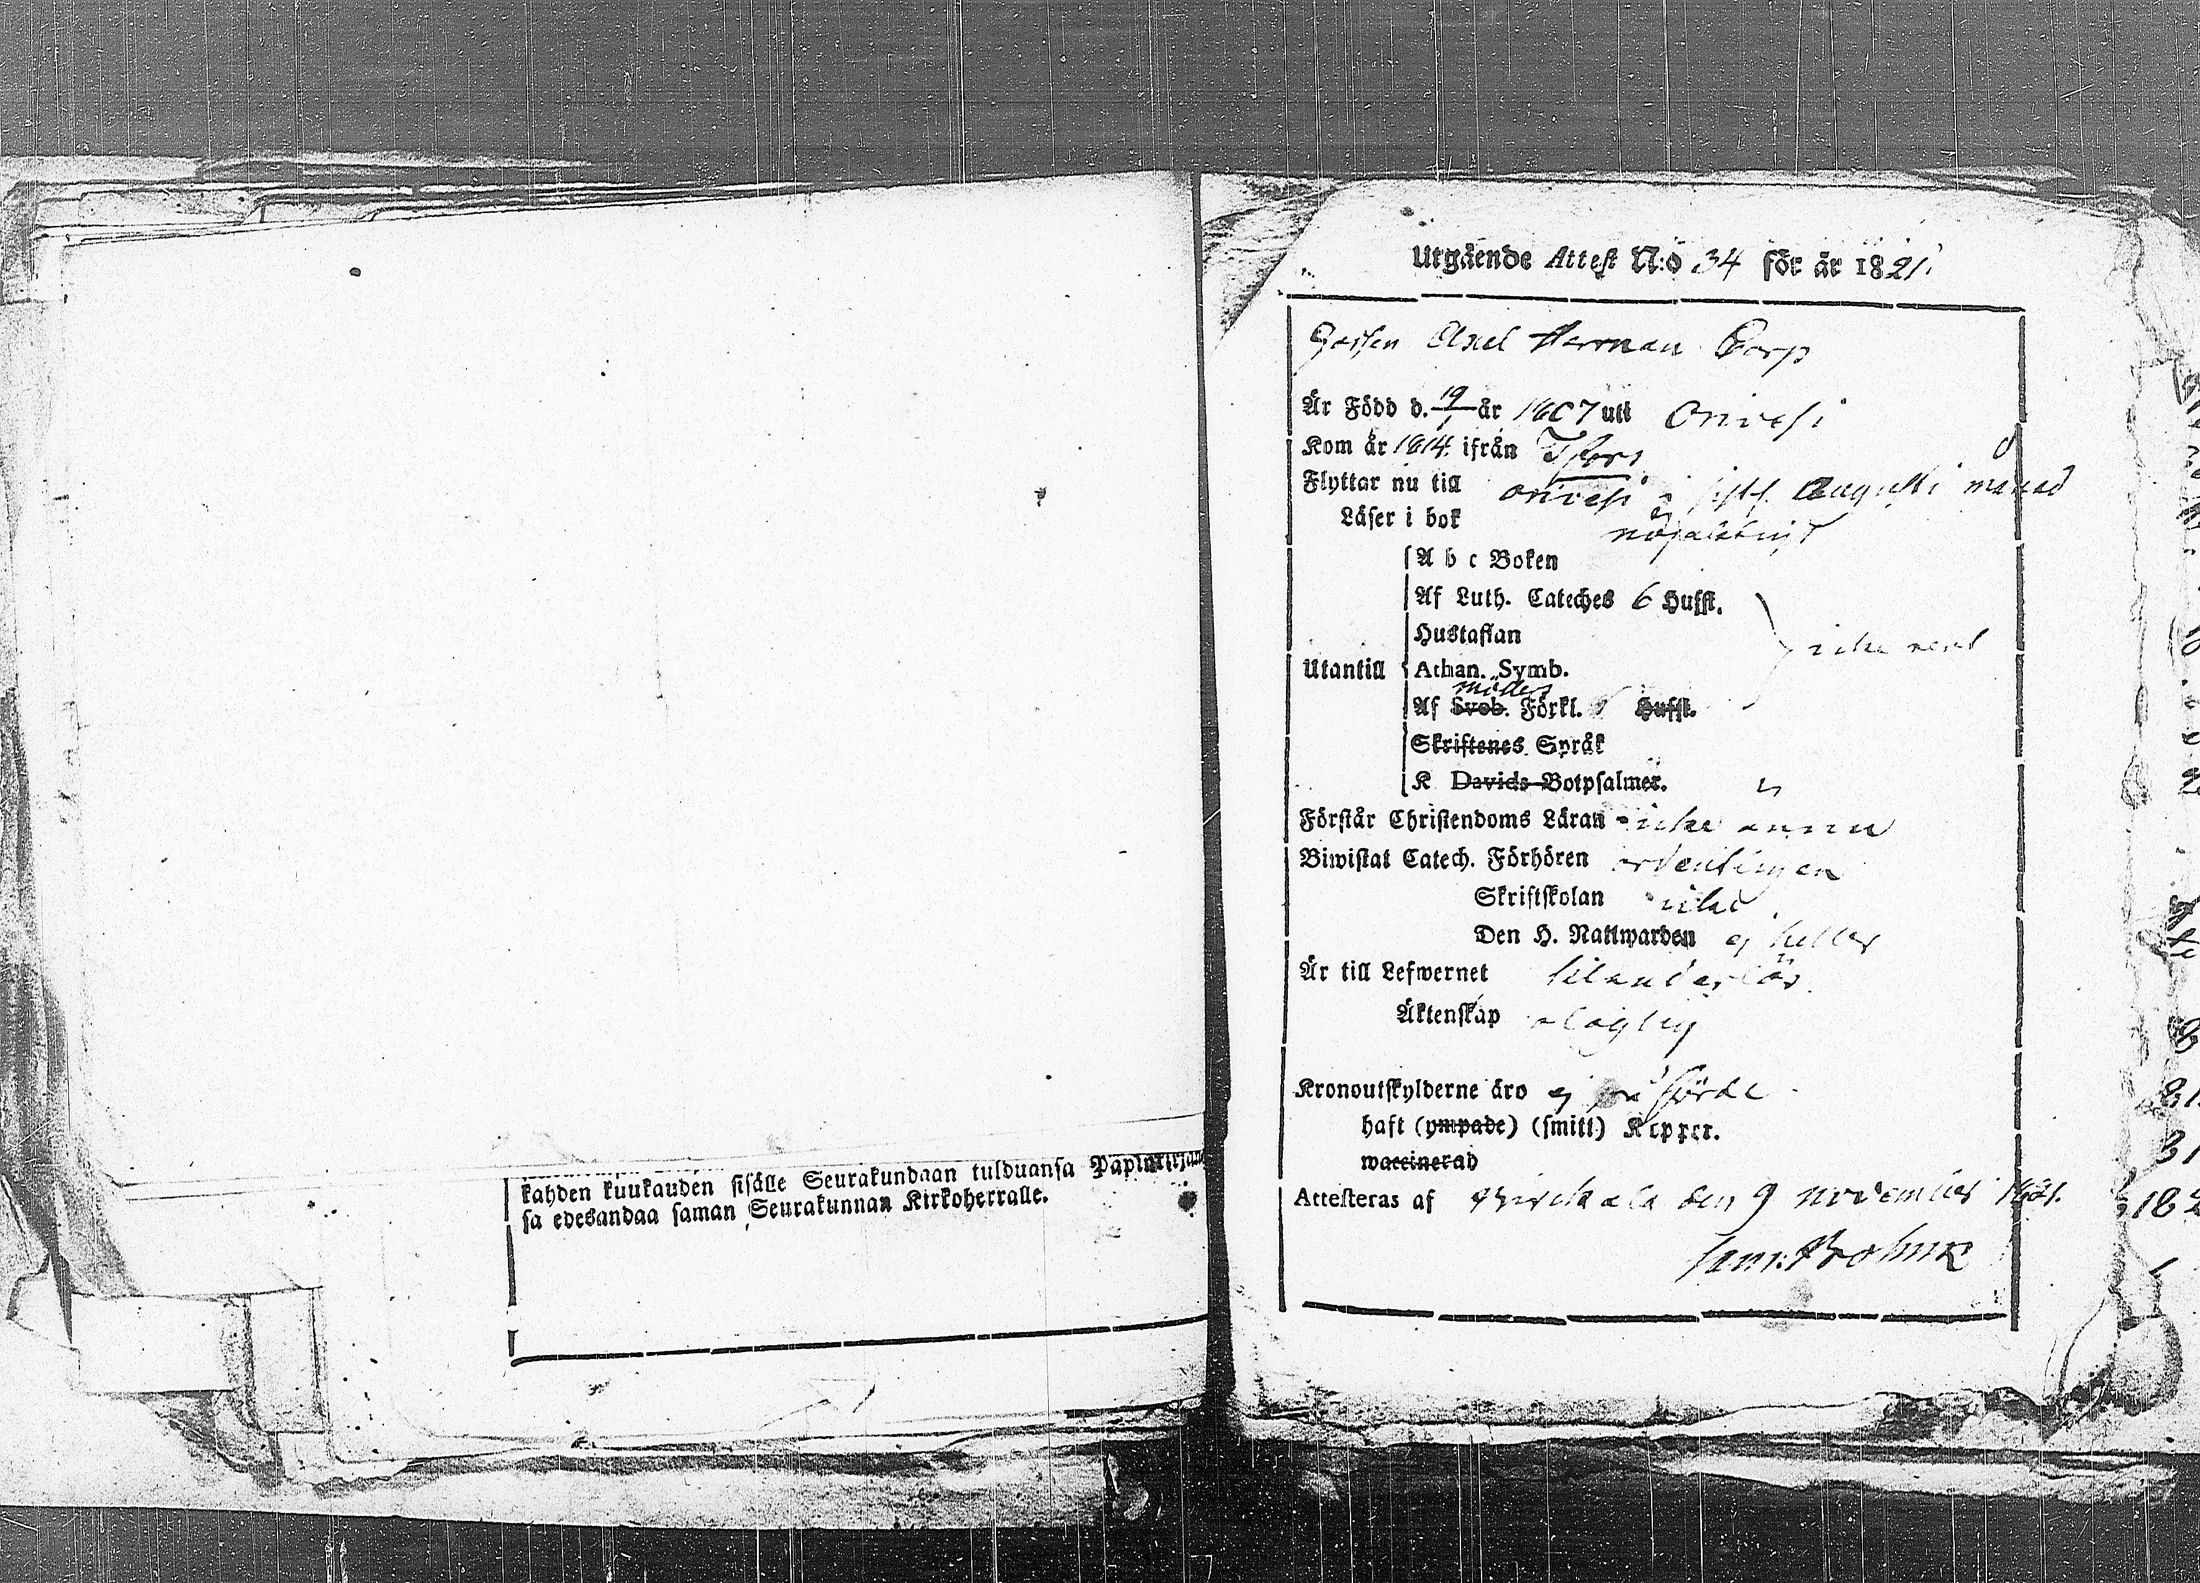 kahden kuukauden sisälle Seurakundaan tulduansa
sa edesandaa saman Seurakunnan Kirkoherralle.
Utgående Attest N:o 34 för år 1821.
Gossen Axel Herman Corp
Är Född d. 19/1 år 1807 uti Orivesi
Kom år 1814. ifrån Tfors
Flyttar nu till Orivesi i sistl. Augusti månad
Läser i bok nöjaktigt
A b c Boken
Af Luth. Cateches 6 Hufst.
Hustaflan
icke rent
Utantill Athan. Symb.
Af Sveb. Förkl. Hufst.
Skriftenes Språk
K Davids Botpsalmer.
Förstår Christendoms Läran icke ännu
Biwistat Catech. Förhören ordentligen
Skriftskolan icke
Den H. Nattwarden ej heller
Är till Lefwernet
Äktenskap
Kronoutskylderne äro ej påförde
haft (ympade) (smitt) Koppor.
waccinerad
Attesteras af Birckala den 9 november 1821.
Sam: